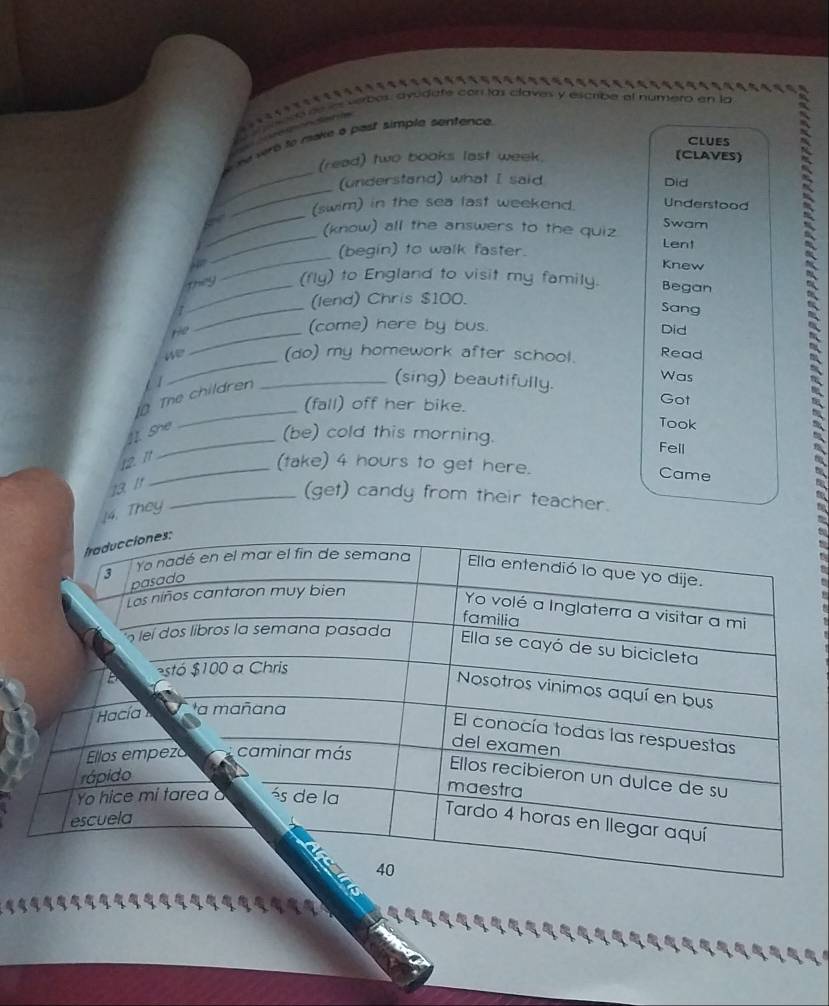 verbos, ayúdate con las claves y escribe el número en la
verb to make a past simple sentence.
(read) two books last week.
(understand) what I said
(swim) in the sea last weekend.
(know) all the answers to the quiz
(begin) to walk faster.
They (fly) to England to visit my family.
I (lend) Chris $100.
He (come) here by bus.
We (do) my homework after school.
I
10. The children (sing) beautifully.
11. She (fall) off her bike.
12. It (be) cold this morning.
13. It (take) 4 hours to get here.
14. They (get) candy from their teacher.
CLUES
(CLAVES)
Did
Understood
Swam
Lent
Knew
Began
Sang
Did
Read
Was
Got
Took
Fell
Came
Traducciones:
3 Yo nadé en el mar el fin de semana
pasado
Ella entendió lo que yo dije.
Los niños cantaron muy bien
Yo volé a Inglaterra a visitar a mi
familia
leí dos libros la semana pasada
Ella se cayó de su bicicleta
$100 a Chris
Nosotros vinimos aquí en bus
Hacía mañana
El conocía todas las respuestas
del examen
Ellos caminar más
rápido
Ellos recibieron un dulce de su
maestra
Yo hice mi tarea de la
escuela
Tardo 4 horas en llegar aquí
40